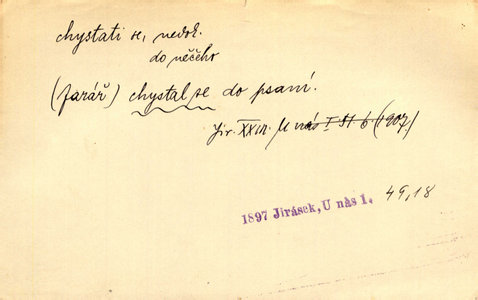 chystati se, nedok.
do něčeho
(farář) chystal se do psaní.
Jir. XXIII. U nás I 51. b. (1907)
1897 Jirásek, U nás I. 49,18